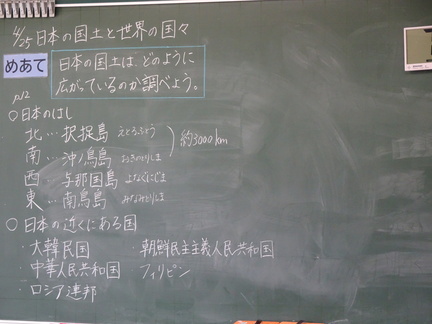 4/25 日本の国土と世界の国々
めあて 日本の国土は、どのように
広がっているのか調べよう。
p.12
○日本のはし
北…択捉島 えとろふとう
南…沖ノ鳥島 おきのとりしま
西 与那国島 よなぐにじま
東…南鳥島 みなみとりしま
約3000km
○日本の近くにある国
・大韓民国 ・朝鮮民主主義人民共和国
・中華人民共和国 フィリピン
・ロシア連邦